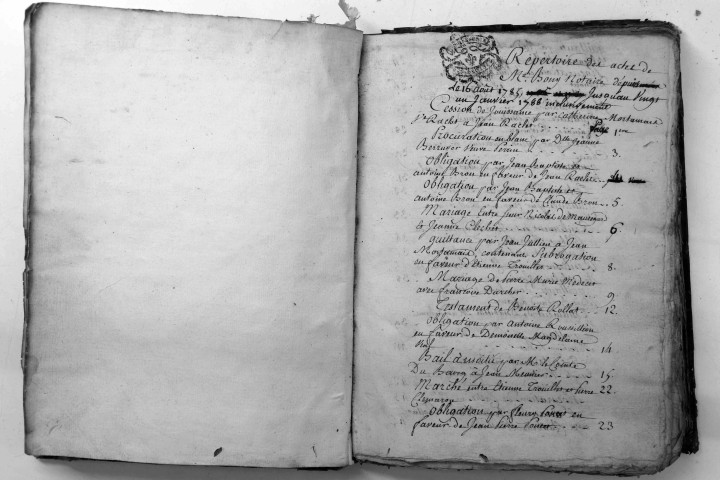 Repertoire des actes de
Me Bouy Notaire depuis
Le 16 août 1785 Jusquau Vingt
un Janvier 1788 inclusivement
Cession de Jouissance par Catherine
Rachet à Jean Rachet Page 1ere
Procuration en blanc par Dlle Jeanne
Veuve 3.
Obligation par Jean Baptiste et
antoine Bron en faveur de Jean Rachet
Obligation par Jean Baptiste et
antoine Bron en faveur de Claude Bron 5.
Mariage Entre Sieur
& Jeanne Clechet 6
quittance par Jean Jullien à Jean
contenant Subrogation
en faveur d'Etienne Trouillet 8.
Mariage de Pierre Marie
avec françoise Durcher 9
Testament de Benoite Rollat 12.
Obligation par antoine Roussillon
en faveur de Demoiselle Magdelaine
14
Bail à moitié par Mr le Comte
Du Bourg à Jean Meunier 15
Marché entre Etienne Trouillet et Pierre 22.
obligation par fleury Poncet en
faveur de Jean Pierre Poncet 23